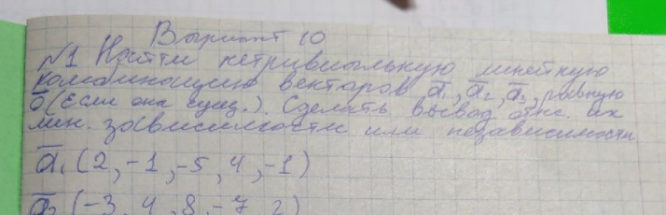 Вариант 10
№1 Найти нетривиальную линейную
комбинацию векторов a̅₁, a̅₂, a̅₃, равную
0̅ (Если она сущ.). Сделать вывод отн. их
лин. зависимости или независимости
a̅₁(2, -1, -5, 4, -1)
a̅₂(-3, 4, 8, -7, 2)